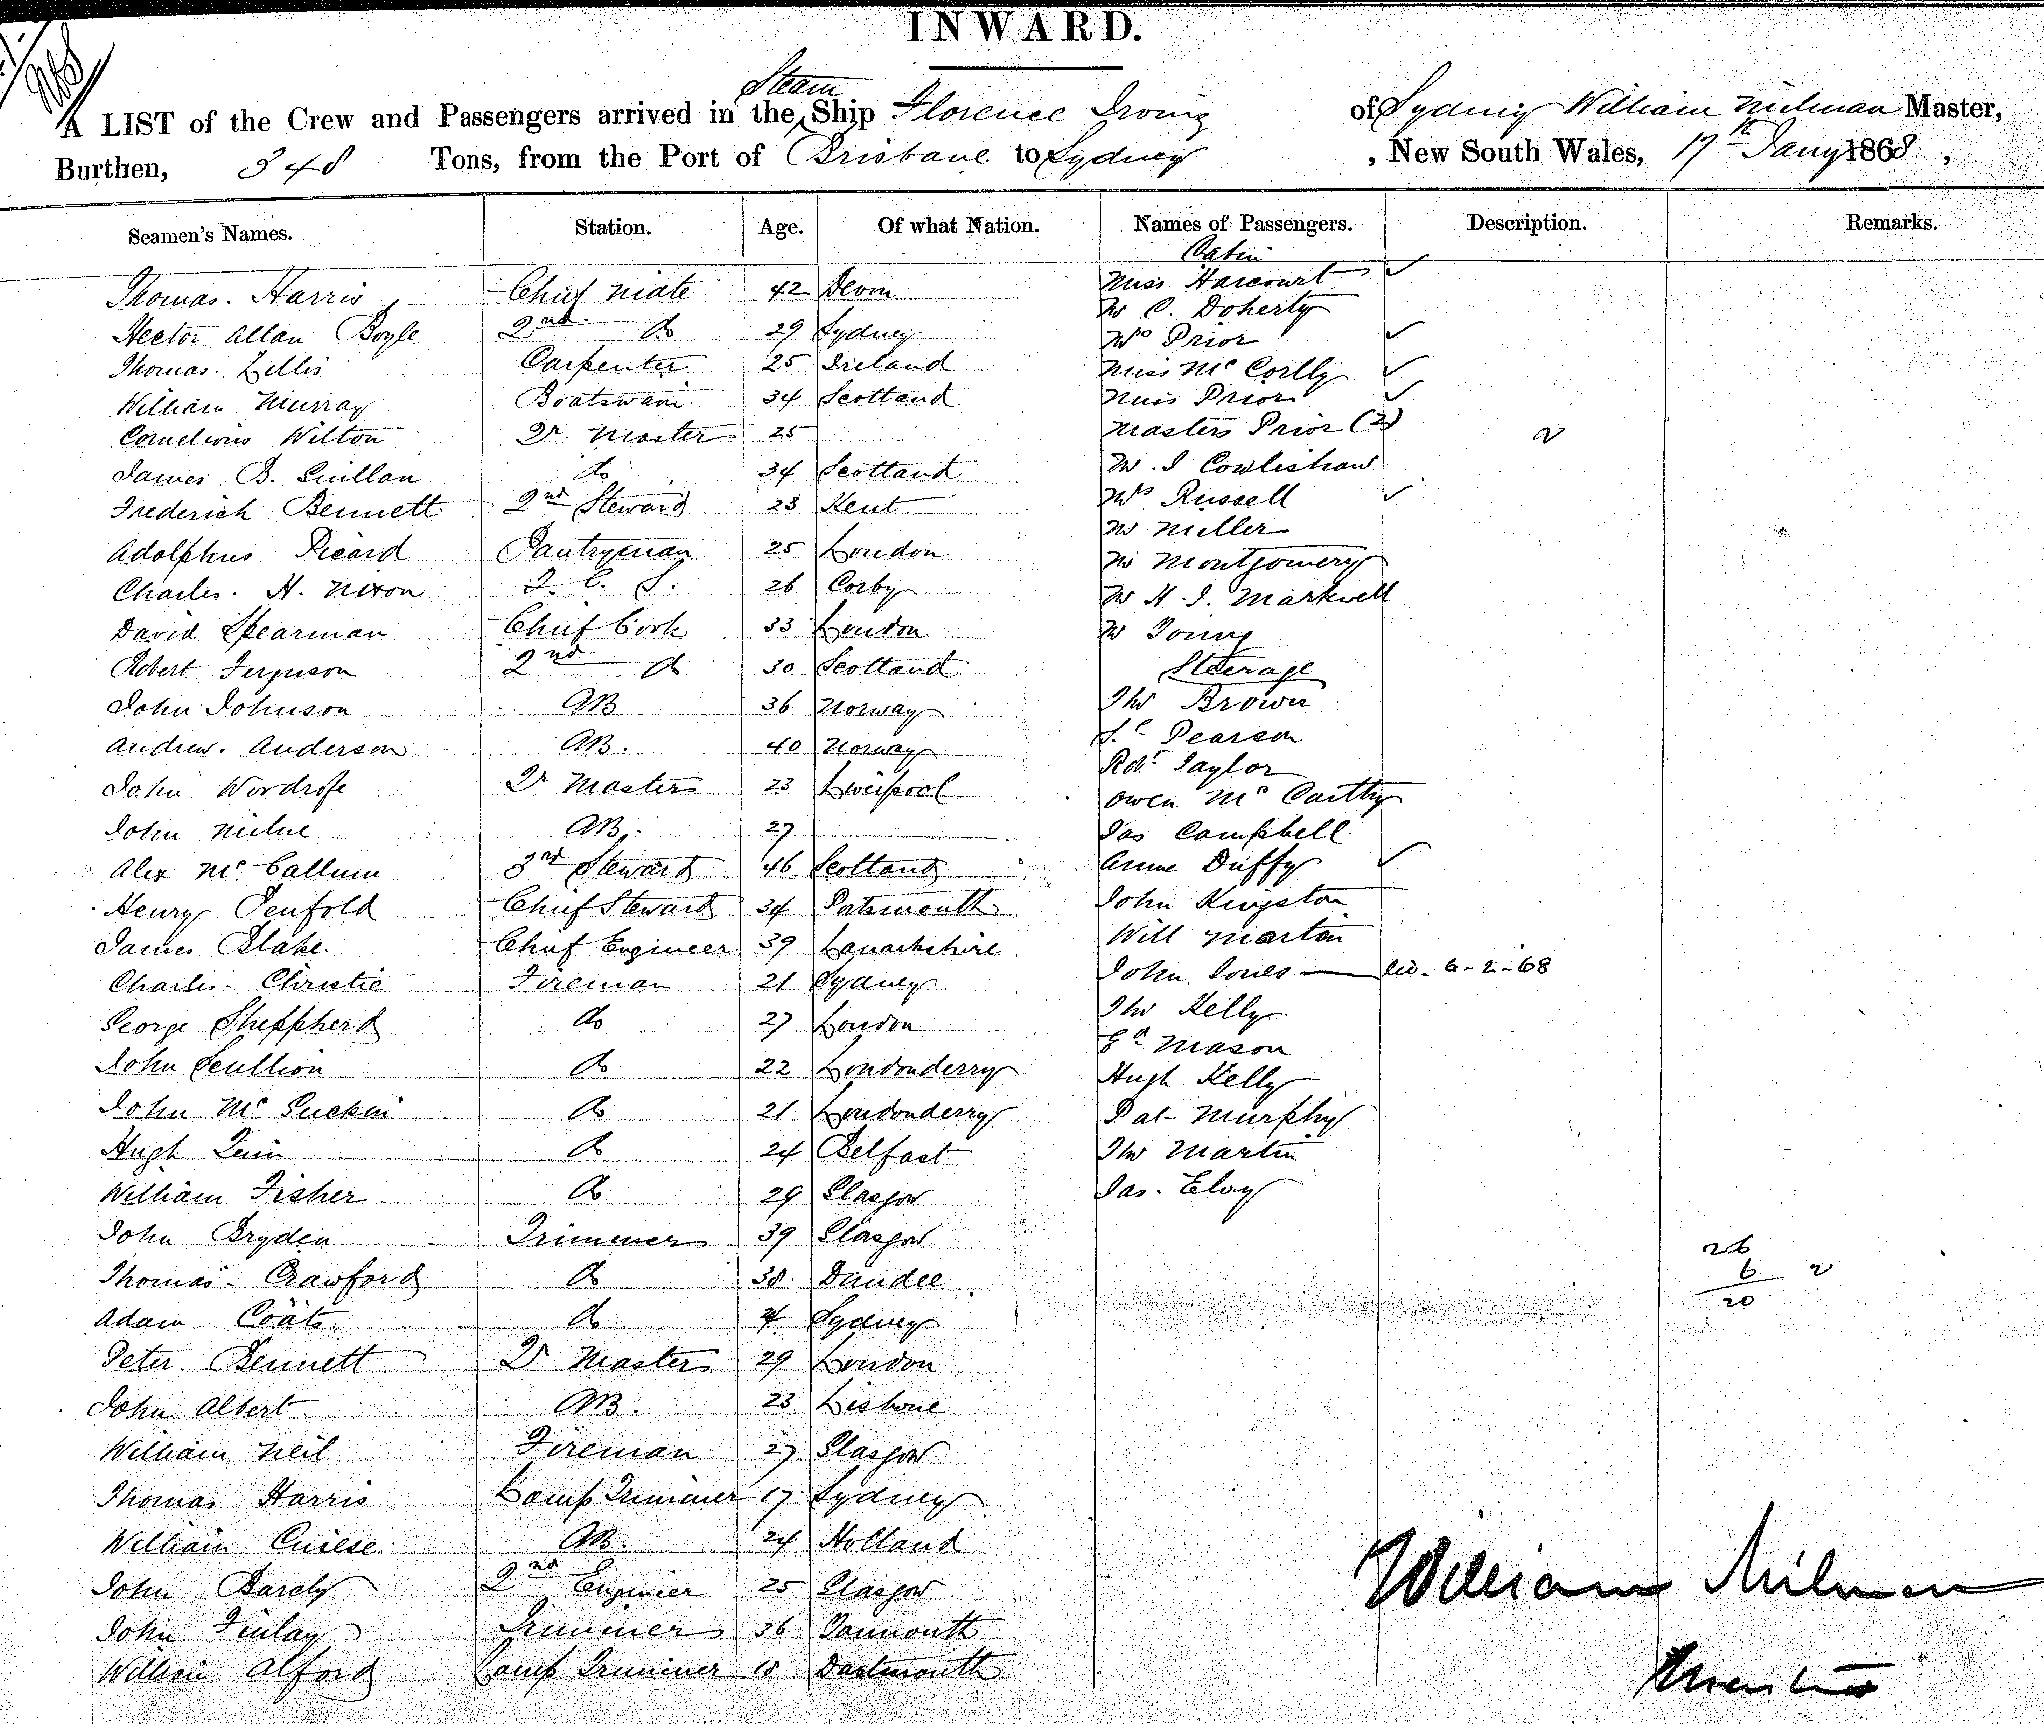 INWARD.
A LIST of the Crew and Passengers arrived in the Steam Ship Florence Irving of Sydney William Milman Master,
Burthen, 348 Tons, from the Port of Brisbane to Sydney , New South Wales, 17th Jany 1868 ,
Seamen's Names. Station. Age. Of what Nation. Names of Passengers. Description. Remarks.
Cabin
Thomas. Harris Chief Mate 42 Devon Miss Harcourt ✓
Hector Allan Boyle 2nd do 29 Sydney Mr C. Doherty
Thomas. Lellis Carpenter 25 Ireland Mrs Prior ✓
William Murray Boatswain 34 Scotland Miss Mc Corlly ✓
Cornelious Wilton Qr Master 25 Miss Prior ✓
James B. Guillan do 34 Scotland Masters Prior (2) 2
Frederich Bennett 2nd Steward 23 Kent Mr. J Cowlishaw
Adolphus Picard Pantryman 25 London Mrs Russell ✓
Charles. H. Nixon F. C. S. 26 Corby Mr Miller
David Spearman Chief Cook 33 London Mr Montgomery
Robert Ferguson 2nd do 30 Scotland Mr H. J. Markwell
John Johnson AB 36 Norway Mr Young
Andrew. Anderson AB. 40 Norway Steerage
John Wordrofe Qr Master 23 Liverpool Thos Brown
John Milne AB. 27 Pearson
Alex Mc Callum 3rd Steward 46 Scotland Robt Taylor
Henry Penfold Chief Steward 34 Patsmouth Owen Mc Carthy
James Blake Chief Engineer 39 Lanarkshire Jas Campbell
Charles Christie Fireman 21 Sydney Anne Duffy ✓
George Sheppherd do 27 London John Kingston
John Scullion do 22 Londonderry Will Martin
John Mc Guckin do 21 Londonderry John Jones 6-2-68
Hugh Quin do 24 Belfast Thos Kelly
William Fisher do 29 Glasgow Ed Mason
John Bryden Trimmer 39 Glasgow Hugh Kelly
Thomas Crawford do 38 Dundee Pat Murphy
Adam Coats do Sydney Thos Martin
Peter Bennett Qr Master 29 London Jas. Eloy
John Albert AB. 23 Lisbone
William Neil Fireman 27 Glasgow
Thomas Harris Lamp Trimmer 17 Sydney
William AB. 24 Holland
John Barely 2nd Engineer 25 Glasgow
John Finlay Trimmer 36
William Alford Lamp Trimmer 18 Dartmouth
26
6 2
20
William Milman
Master